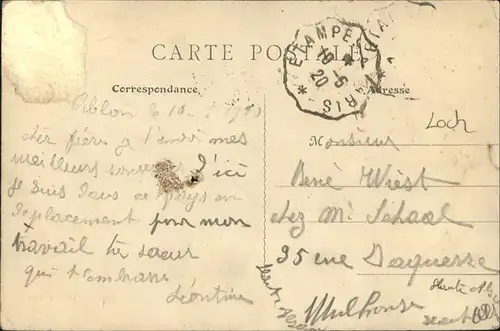 CARTE POSTALE
ETAMPES À PARIS
10 -6
20
Correspondance
Adresse
Ablon le 10 - 6 1920
Cher frère je t'envoi mes
meilleurs souvenirs d'ici
je suis dans ce pays en
déplacement pour mon
travail ta sœur
qui t'embrasse
Léontine
Loch
Monsieur
René Wiest
chez Mr Schaal
35 rue Daguerre
Mulhouse